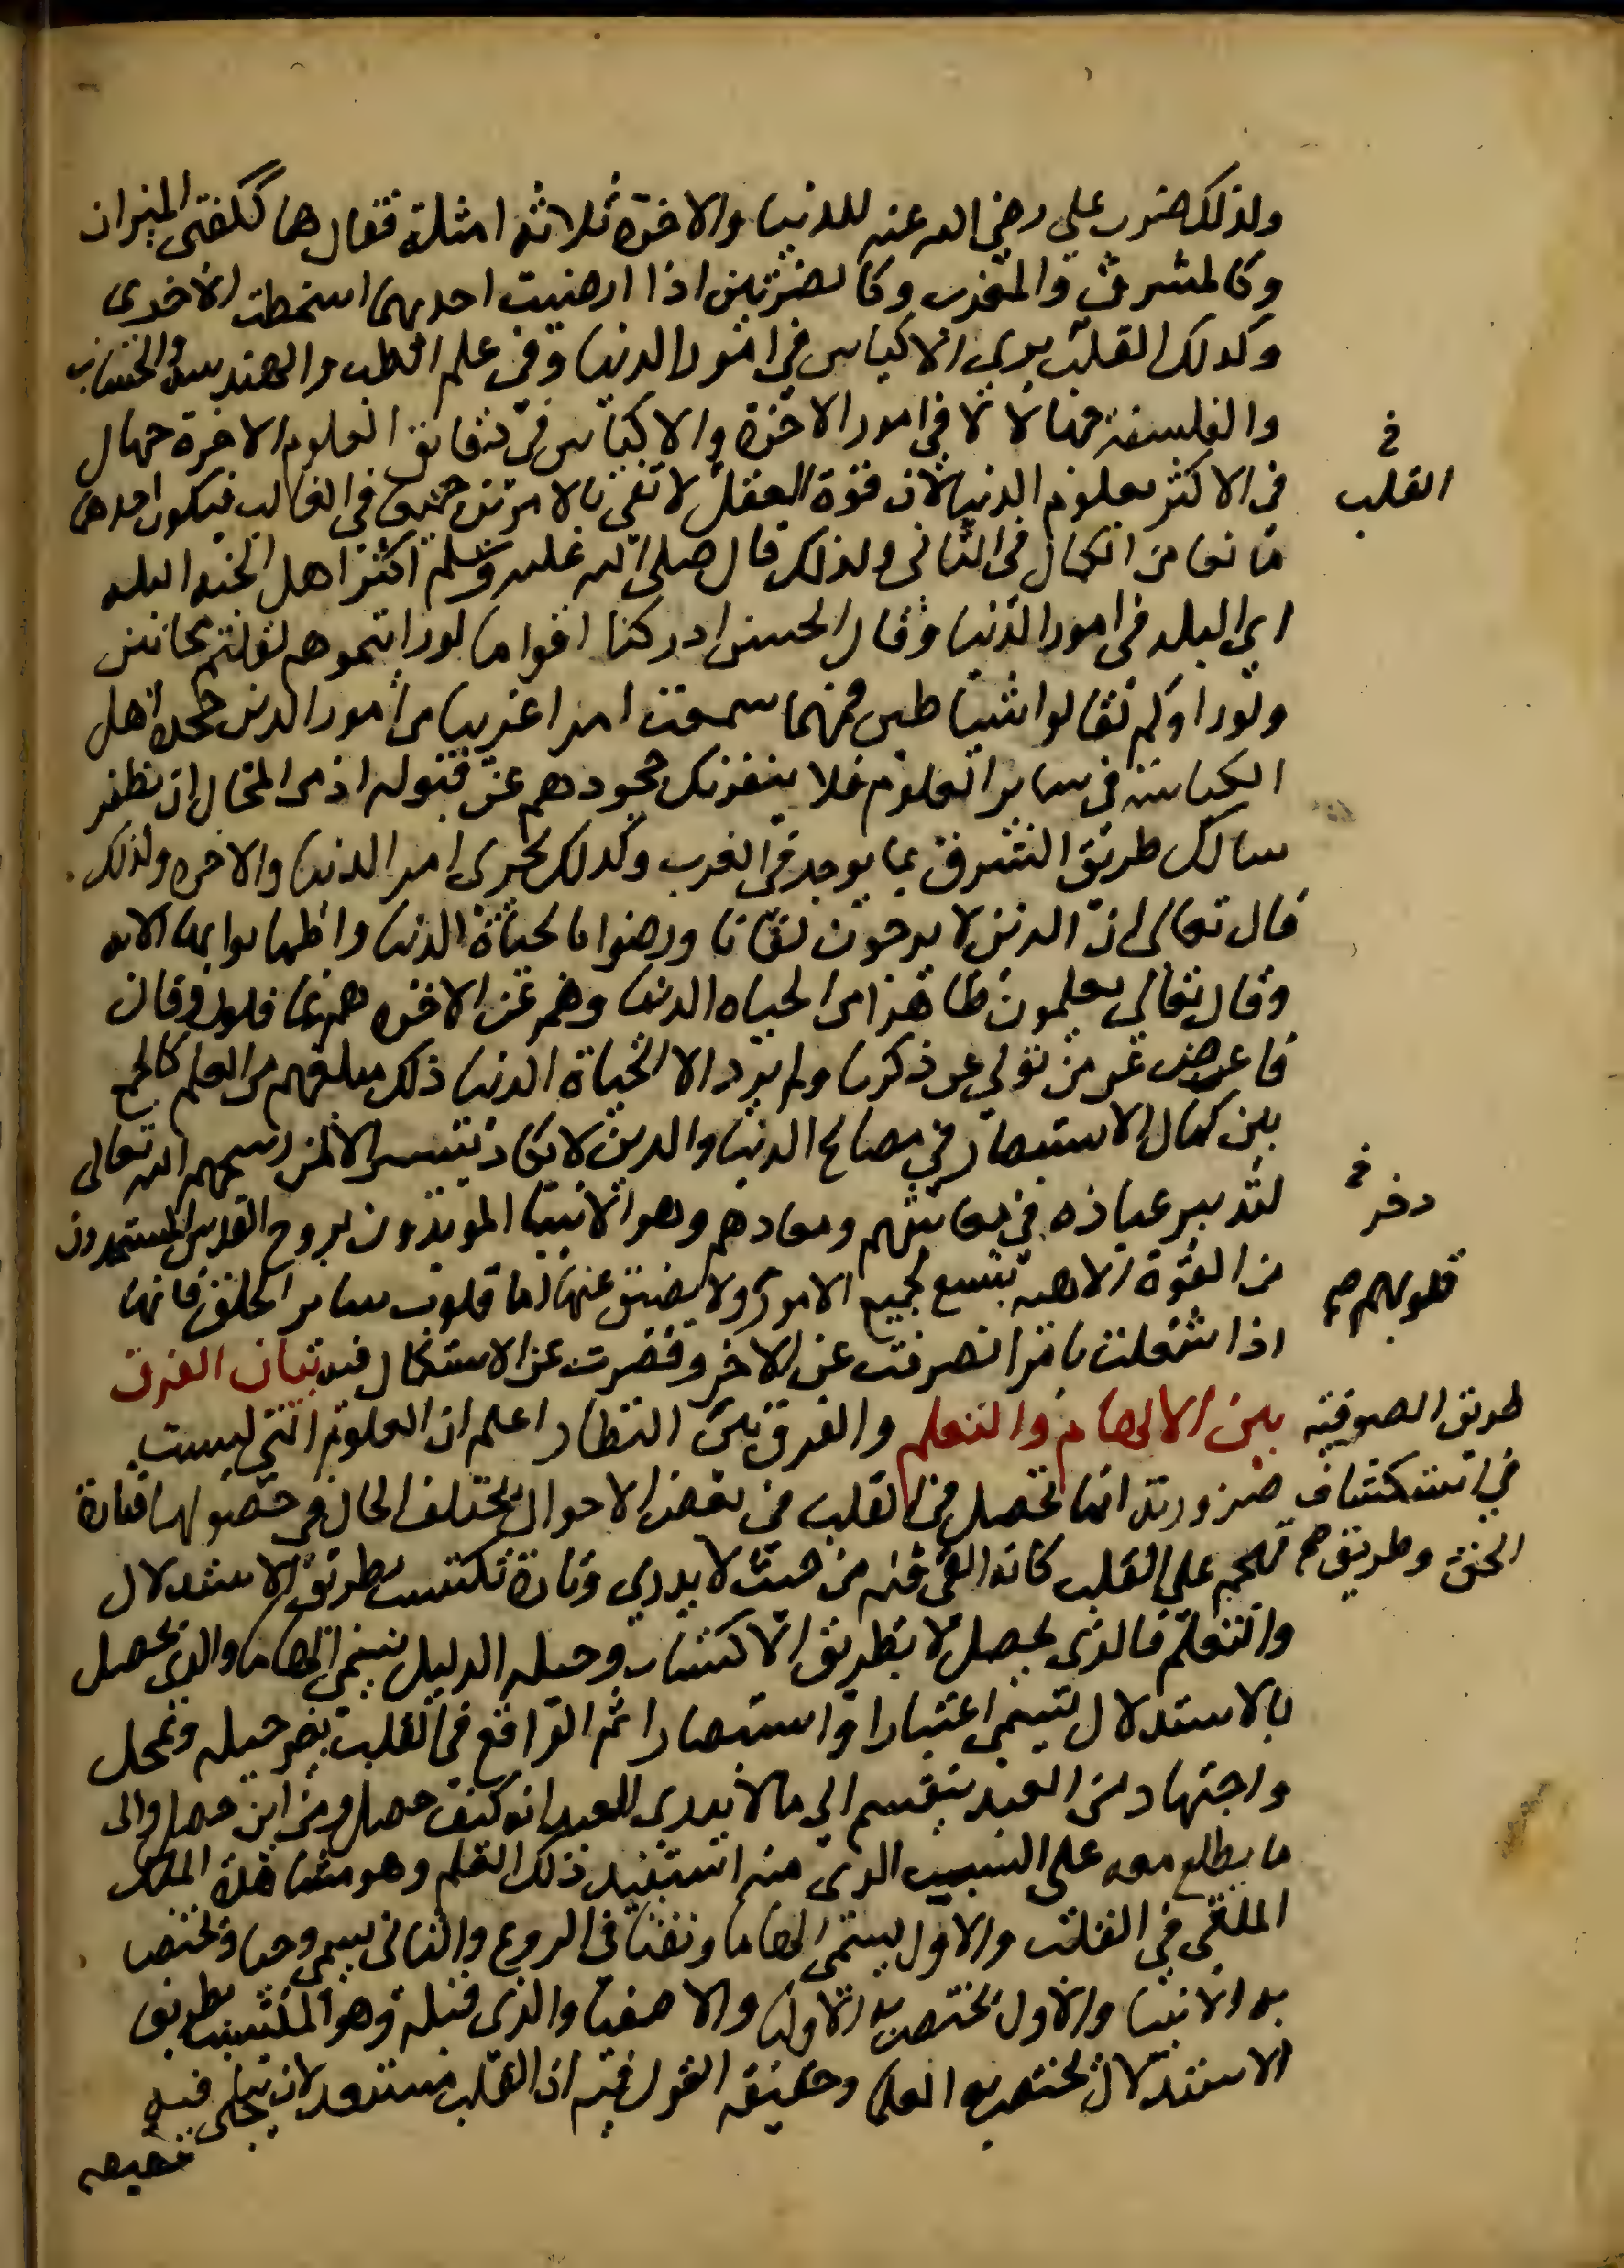 ولذلك ضرب علي رضي الله عنه للدنيا والاخرة ثلاثة امثلة فقال هما ككفتي الميزان
وكالمشرق والمغرب وكالضرتين اذا ارضيت احديهما اسخطت الاخرى
وكذلك القلب يرى الاكياس في امور الدنيا وفي علم الطب والهندسة والحساب
والفلسفة جهالا لا في امور الاخرة والاكياس في دقائق العلوم الاخرة جهال
في
القلب
في الاكثر بعلوم الدنيا لان قوة العقل لا تفي بالامرين جميعا في الغالب فيكون احدهما
مانعا من الكمال في الثاني ولذلك قال صلى الله عليه وسلم اكثر اهل الجنة البله
اي البله في امور الدنيا وقال الحسن ادركنا اقواما لو رايتموهم لقلتم مجانين
ولو راوكم لقالوا شياطين فمهما سمعت امرا غريبا من امور الدين جحده اهل
الكياسة في ساير العلوم فلا ينفرنك جحودهم عن قبوله اذ من المحال ان يظفر
سالك طريق الشرق بما يوجد في الغرب وكذلك يجرى امر الدنيا والاخره ولذلك
قال تعالى ان الذين لا يرجون لقانا ورضوا بالحياة الدنيا واطمانوا بها الايه
وقال تعالى يعلمون ظاهرا من الحياه الدنيا وهم عن الاخره هم غافلون وقال
فاعرض عن من تولى عن ذكرنا ولم يرد الا الحياة الدنيا ذلك مبلغهم من العلم فالجمع
بين كمال الاستبصار في مصالح الدنيا والدين لا يكاد يتيسر الا لمن رسمهم الله تعالى
لتدبير عباده في معاشهم ومعادهم وهو الانبيا المويدون بروح القدس المستمدون
قلوبهم صح
من القوة الالهيه تتسع لجميع الامور ولا يضيق عنها اما قلوب ساير الخلق فانها
اذا شغلت بامر انصرفت عن الاخر وقصرت عن الاستكمال فيه بيان الفرق
طريق الصوفية بين الالهام والتعلم والفرق بين النظار اعلم ان العلوم التي ليست
في استكشاف ضرورية انما تحصل في القلب في بعض الاحوال يختلف الحال في حصولها فتارة
الحق وطريق تهجم على القلب كانه القي فيه من حيث لا يدري وتارة تكتسب بطريق الاستدلال
والتعلم فالذي يحصل لا بطريق الاكتساب وحيله الدليل يسمى الهاما والذي يحصل
بالاستدلال يسمى اعتبارا واستبصارا ثم الواقع في القلب بغير حيله وتمحل
واجتهاد من العبد ينقسم الى ما لا يدرى العبد انه كيف حصل ومن اين حصل والى
ما يطلع معه على السبب الذى منه استفيد ذلك العلم وهو مشاهدة الملك
الملقى في القلب والاول يسمى الهاما ونفثا في الروع والثاني يسمى وحيا وتختص
به الانبيا والاول يختص به الاوليا والاصفيا والذى قبله وهو المكتسب بطريق
الاستدلال يختص به العلما وحقيقة القول فيه ان القلب مستعد لان يتجلى فيه